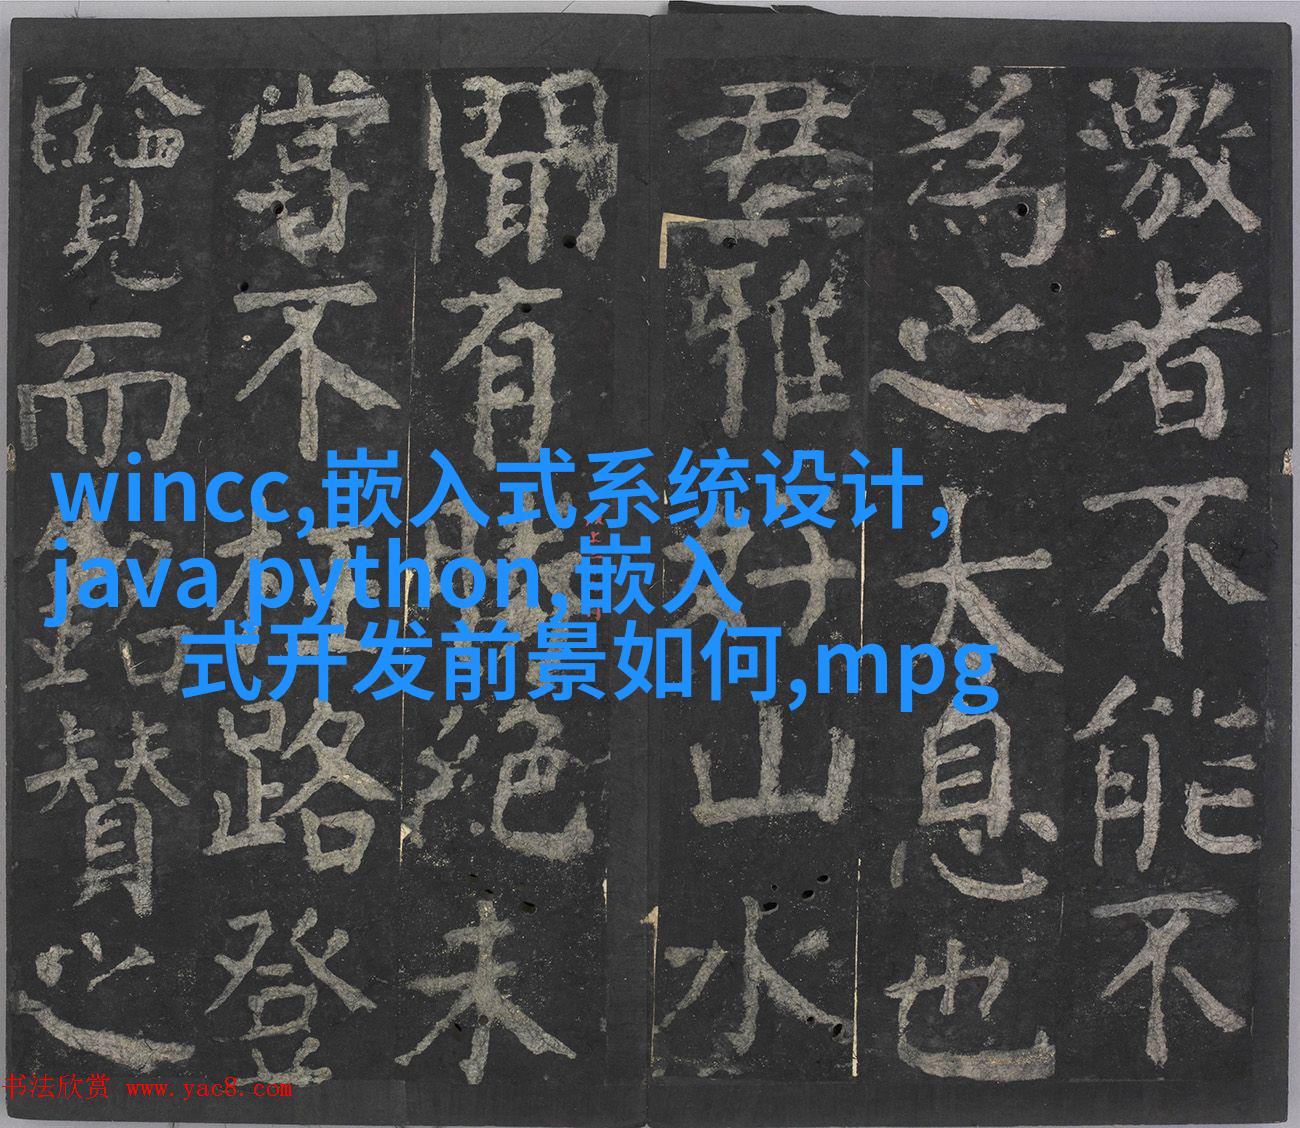 激者不能不
為之大息也
君雅好山水
聞有勝絕未
嘗不枉路登
覽而銘贊之
wincc,嵌入式系统设计,
java python,嵌入
式开发前景如何,mpg
书法欣赏 www.yac8.com